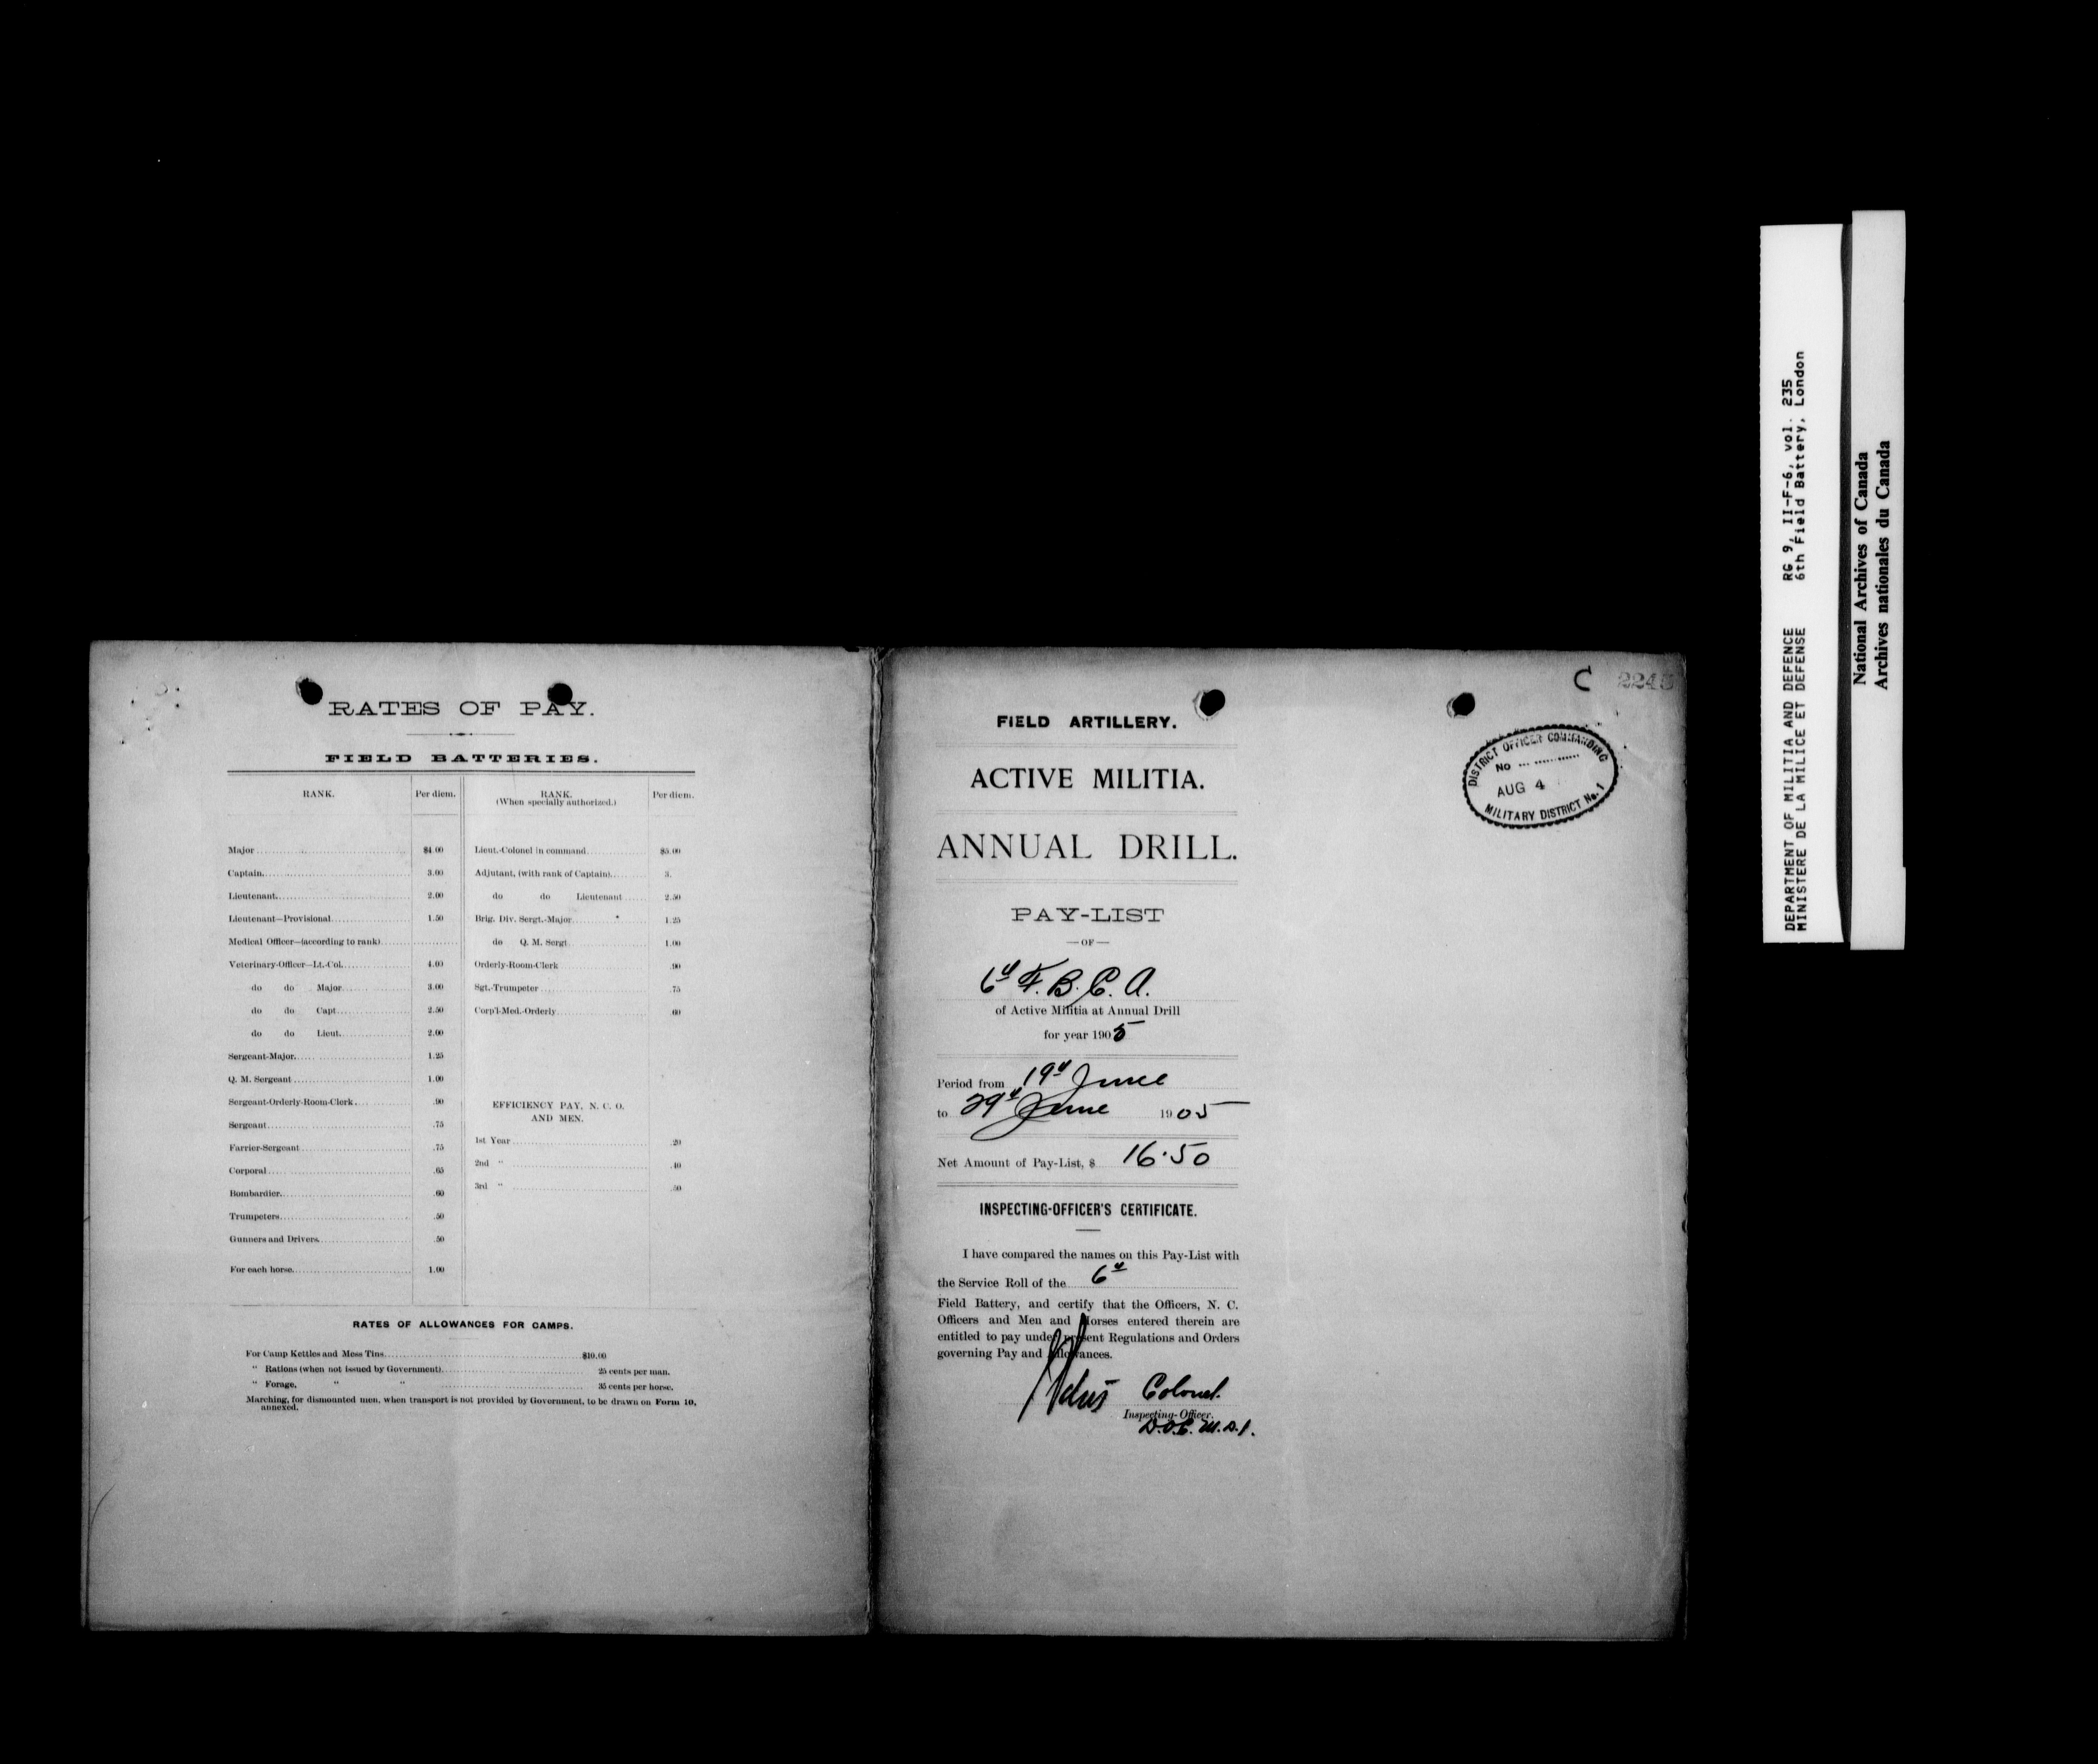 RATES OF PAY.
FIELD BATTERIES.
RANK. Per diem.
Major $4.00
Captain 3.00
Lieutenant 2.00
Lieutenant—Provisional 1.50
Medical Officer—(according to rank)
Veterinary-Officer—Lt.-Col. 4.00
do do Major 3.00
do do Capt 2.50
do do Lieut. 2.00
Sergeant-Major 1.25
Q. M. Sergeant 1.00
Sergeant-Orderly-Room-Clerk .90
Sergeant .75
Farrier-Sergeant .75
Corporal .65
Bombardier .60
Trumpeters .50
Gunners and Drivers .50
For each horse 1.00
RANK. Per diem.
(When specially authorized.)
Lieut.-Colonel in command $5.00
Adjutant, (with rank of Captain) 3.
do do Lieutenant 2.50
Brig. Div. Sergt.-Major 1.25
do Q. M. Sergt 1.00
Orderly-Room-Clerk .90
Sgt.-Trumpeter .75
Corp'l-Med.-Orderly .60
EFFICIENCY PAY, N. C. O.
AND MEN.
1st Year .20
2nd " .40
3rd " .50
RATES OF ALLOWANCES FOR CAMPS.
For Camp Kettles and Mess Tins $10.00
" Rations (when not issued by Government) 25 cents per man.
" Forage, " " 35 cents per horse.
Marching, for dismounted men, when transport is not provided by Government, to be drawn on Form 10,
annexed.
C 224
FIELD ARTILLERY.
ACTIVE MILITIA.
ANNUAL DRILL.
PAY-LIST
—OF—
6th F. B. C. A.
of Active Militia at Annual Drill
for year 1905
Period from 19th June
to 29th June 1905
Net Amount of Pay-List, $ 16.50
INSPECTING-OFFICER'S CERTIFICATE.
I have compared the names on this Pay-List with
the Service Roll of the 6th
Field Battery, and certify that the Officers, N. C.
Officers and Men and Horses entered therein are
entitled to pay under present Regulations and Orders
governing Pay and Allowances.
Colonel
Inspecting-Officer.
D.O.C. M.D.1.
DISTRICT OFFICER COMMANDING
No
AUG 4
MILITARY DISTRICT No. 1
DEPARTMENT OF MILITIA AND DEFENCE RG 9, II-F-6, vol. 235
MINISTERE DE LA MILICE ET DEFENSE 6th Field Battery, London
National Archives of Canada
Archives nationales du Canada